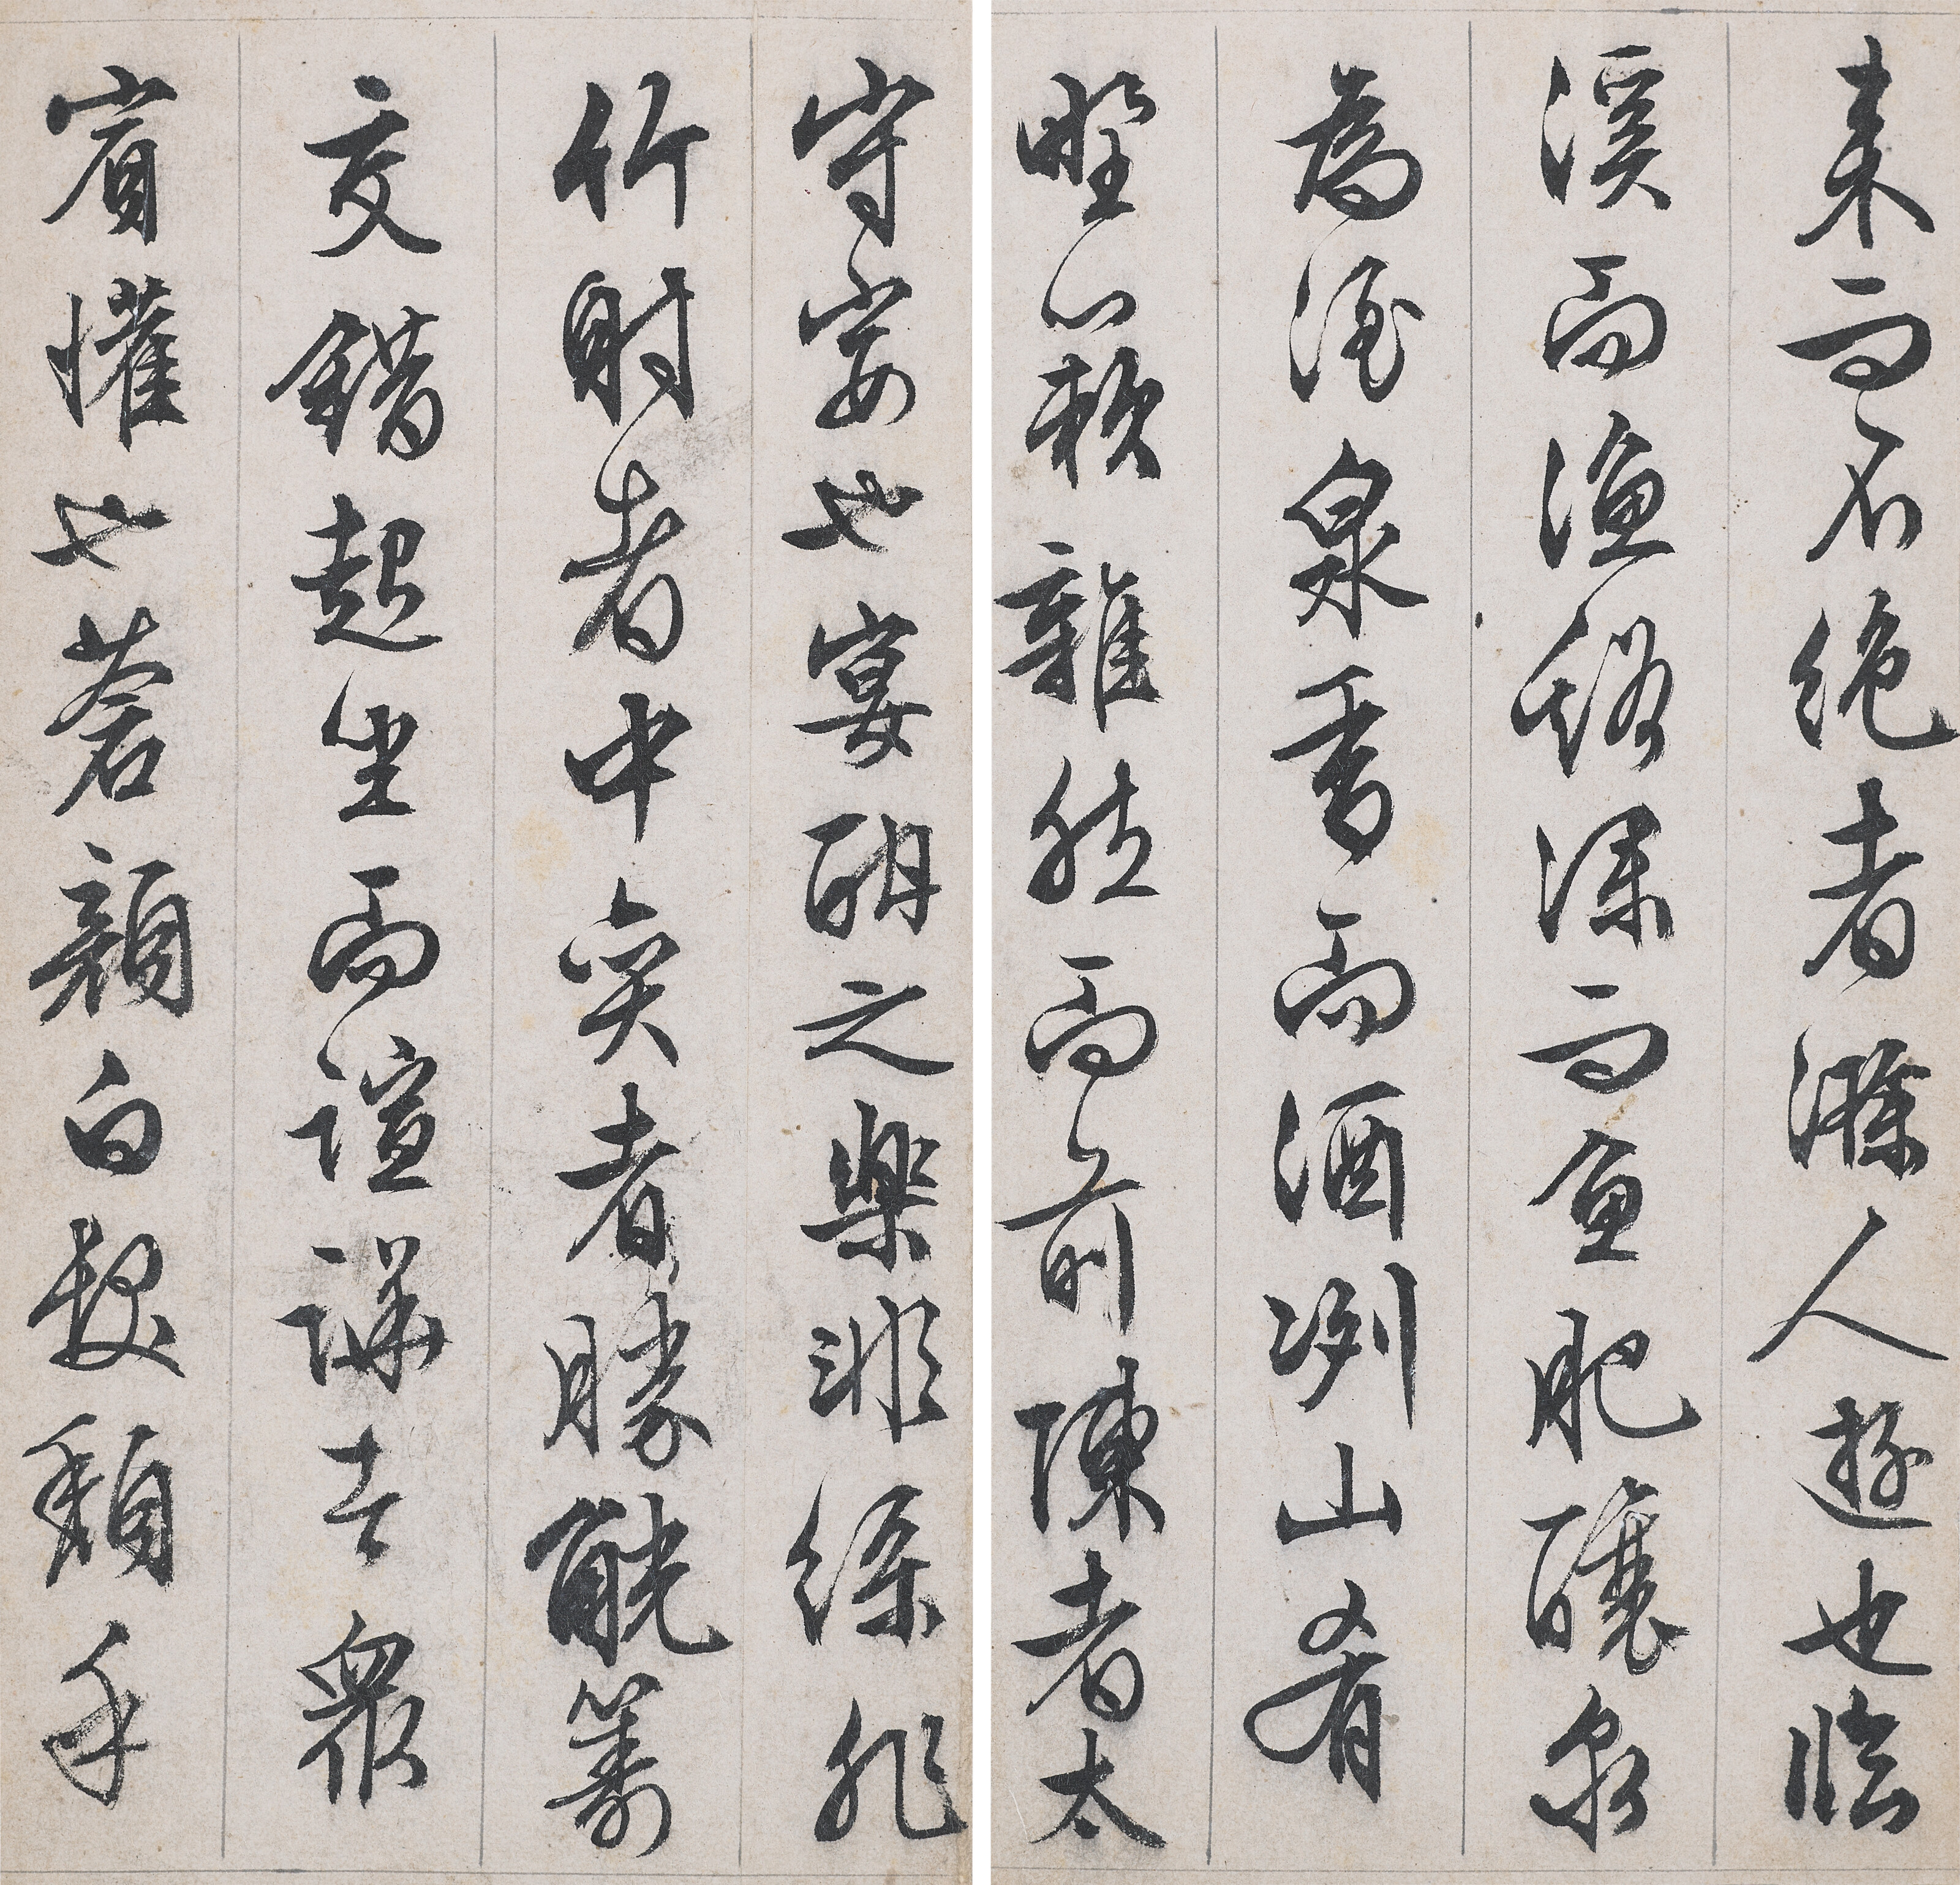 来而不絶者滁人遊也臨
溪而漁谿深而魚肥釀泉
為酒泉香而酒冽山肴
野蔌雜然而前陳者太
守宴也宴酣之樂非絲非
竹射者中奕者勝觥籌
交錯起坐而諠譁者衆
賓懽也蒼顔白髮頽乎